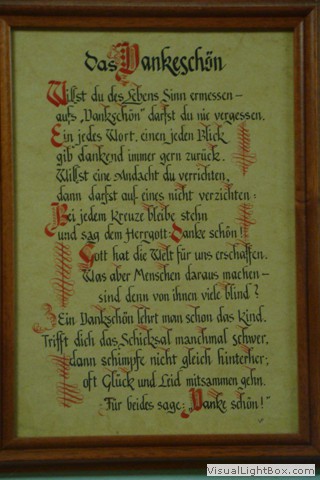 das Dankeschön
Willst du des Lebens Sinn ermessen –
aufs „Dankschön" darfst du nie vergessen.
Ein jedes Wort, einen jeden Blick
gib dankend immer gern zurück.
Willst eine Andacht du verrichten,
dann darfst auf eines nicht verzichten:
Bei jedem Kreuze bleibe stehn
und sag dem Herrgott: Danke schön!
Gott hat die Welt für uns erschaffen.
Was aber Menschen daraus machen –
sind denn von ihnen viele blind?
Ein Dankschön lehrt man schon das Kind.
Trifft dich das Schicksal manchmal schwer,
dann schimpfe nicht gleich hinterher;
oft Glück und Leid mitsammen gehn.
Für beides sage: „Danke schön!"
VisualLightBox.com